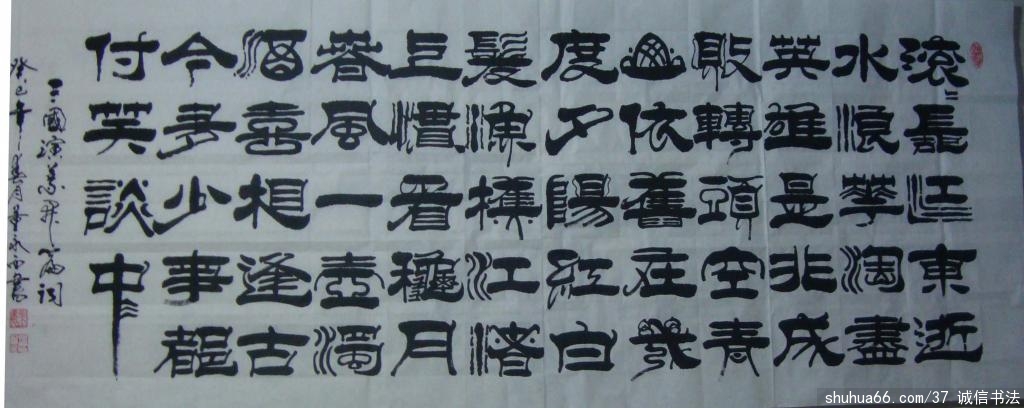 滚〻長江東逝
水浪華淘盡
英雄是非成
敗轉頭空青
山依舊在幾
度夕陽紅白
髮漁樵江渚
上慣看穐月
春風一壺濁
酒喜相逢古
今多少事都
付笑談中
三國演義開篇詞
癸巳年
shuhua66.com/37 诚信书法